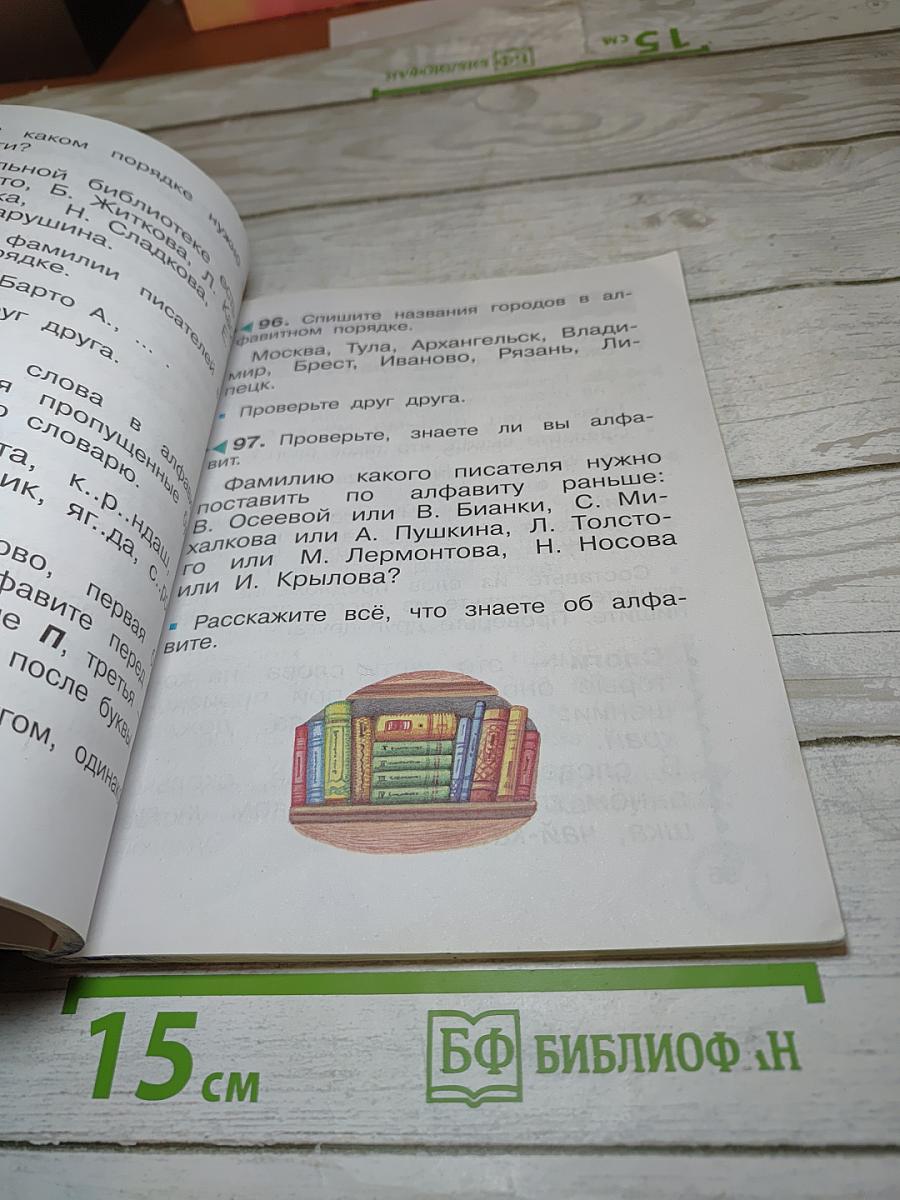 каком порядке нужно
библиотеке
Б. Житкова, Л.
Н. Сладкова,
фамилии писателей
Барто А., ...
друга.
слова в
пропущенные
словарю.
к..р..ндаш,
яг..да,
первая
перед
П, третья
после буквы
96. Спишите названия городов в ал-
фавитном порядке.
Москва, Тула, Архангельск, Влади-
мир, Брест, Иваново, Рязань, Ли-
пецк.
Проверьте друг друга.
97. Проверьте, знаете ли вы алфа-
вит.
Фамилию какого писателя нужно
поставить по алфавиту раньше:
В. Осеевой или В. Бианки, С. Ми-
халкова или А. Пушкина, Л. Толсто-
го или М. Лермонтова, Н. Носова
или И. Крылова?
Расскажите всё, что знаете об алфа-
вите.
15 см
БФ БИБЛИОФАН
15 см
БФ БИБЛИОФ АН